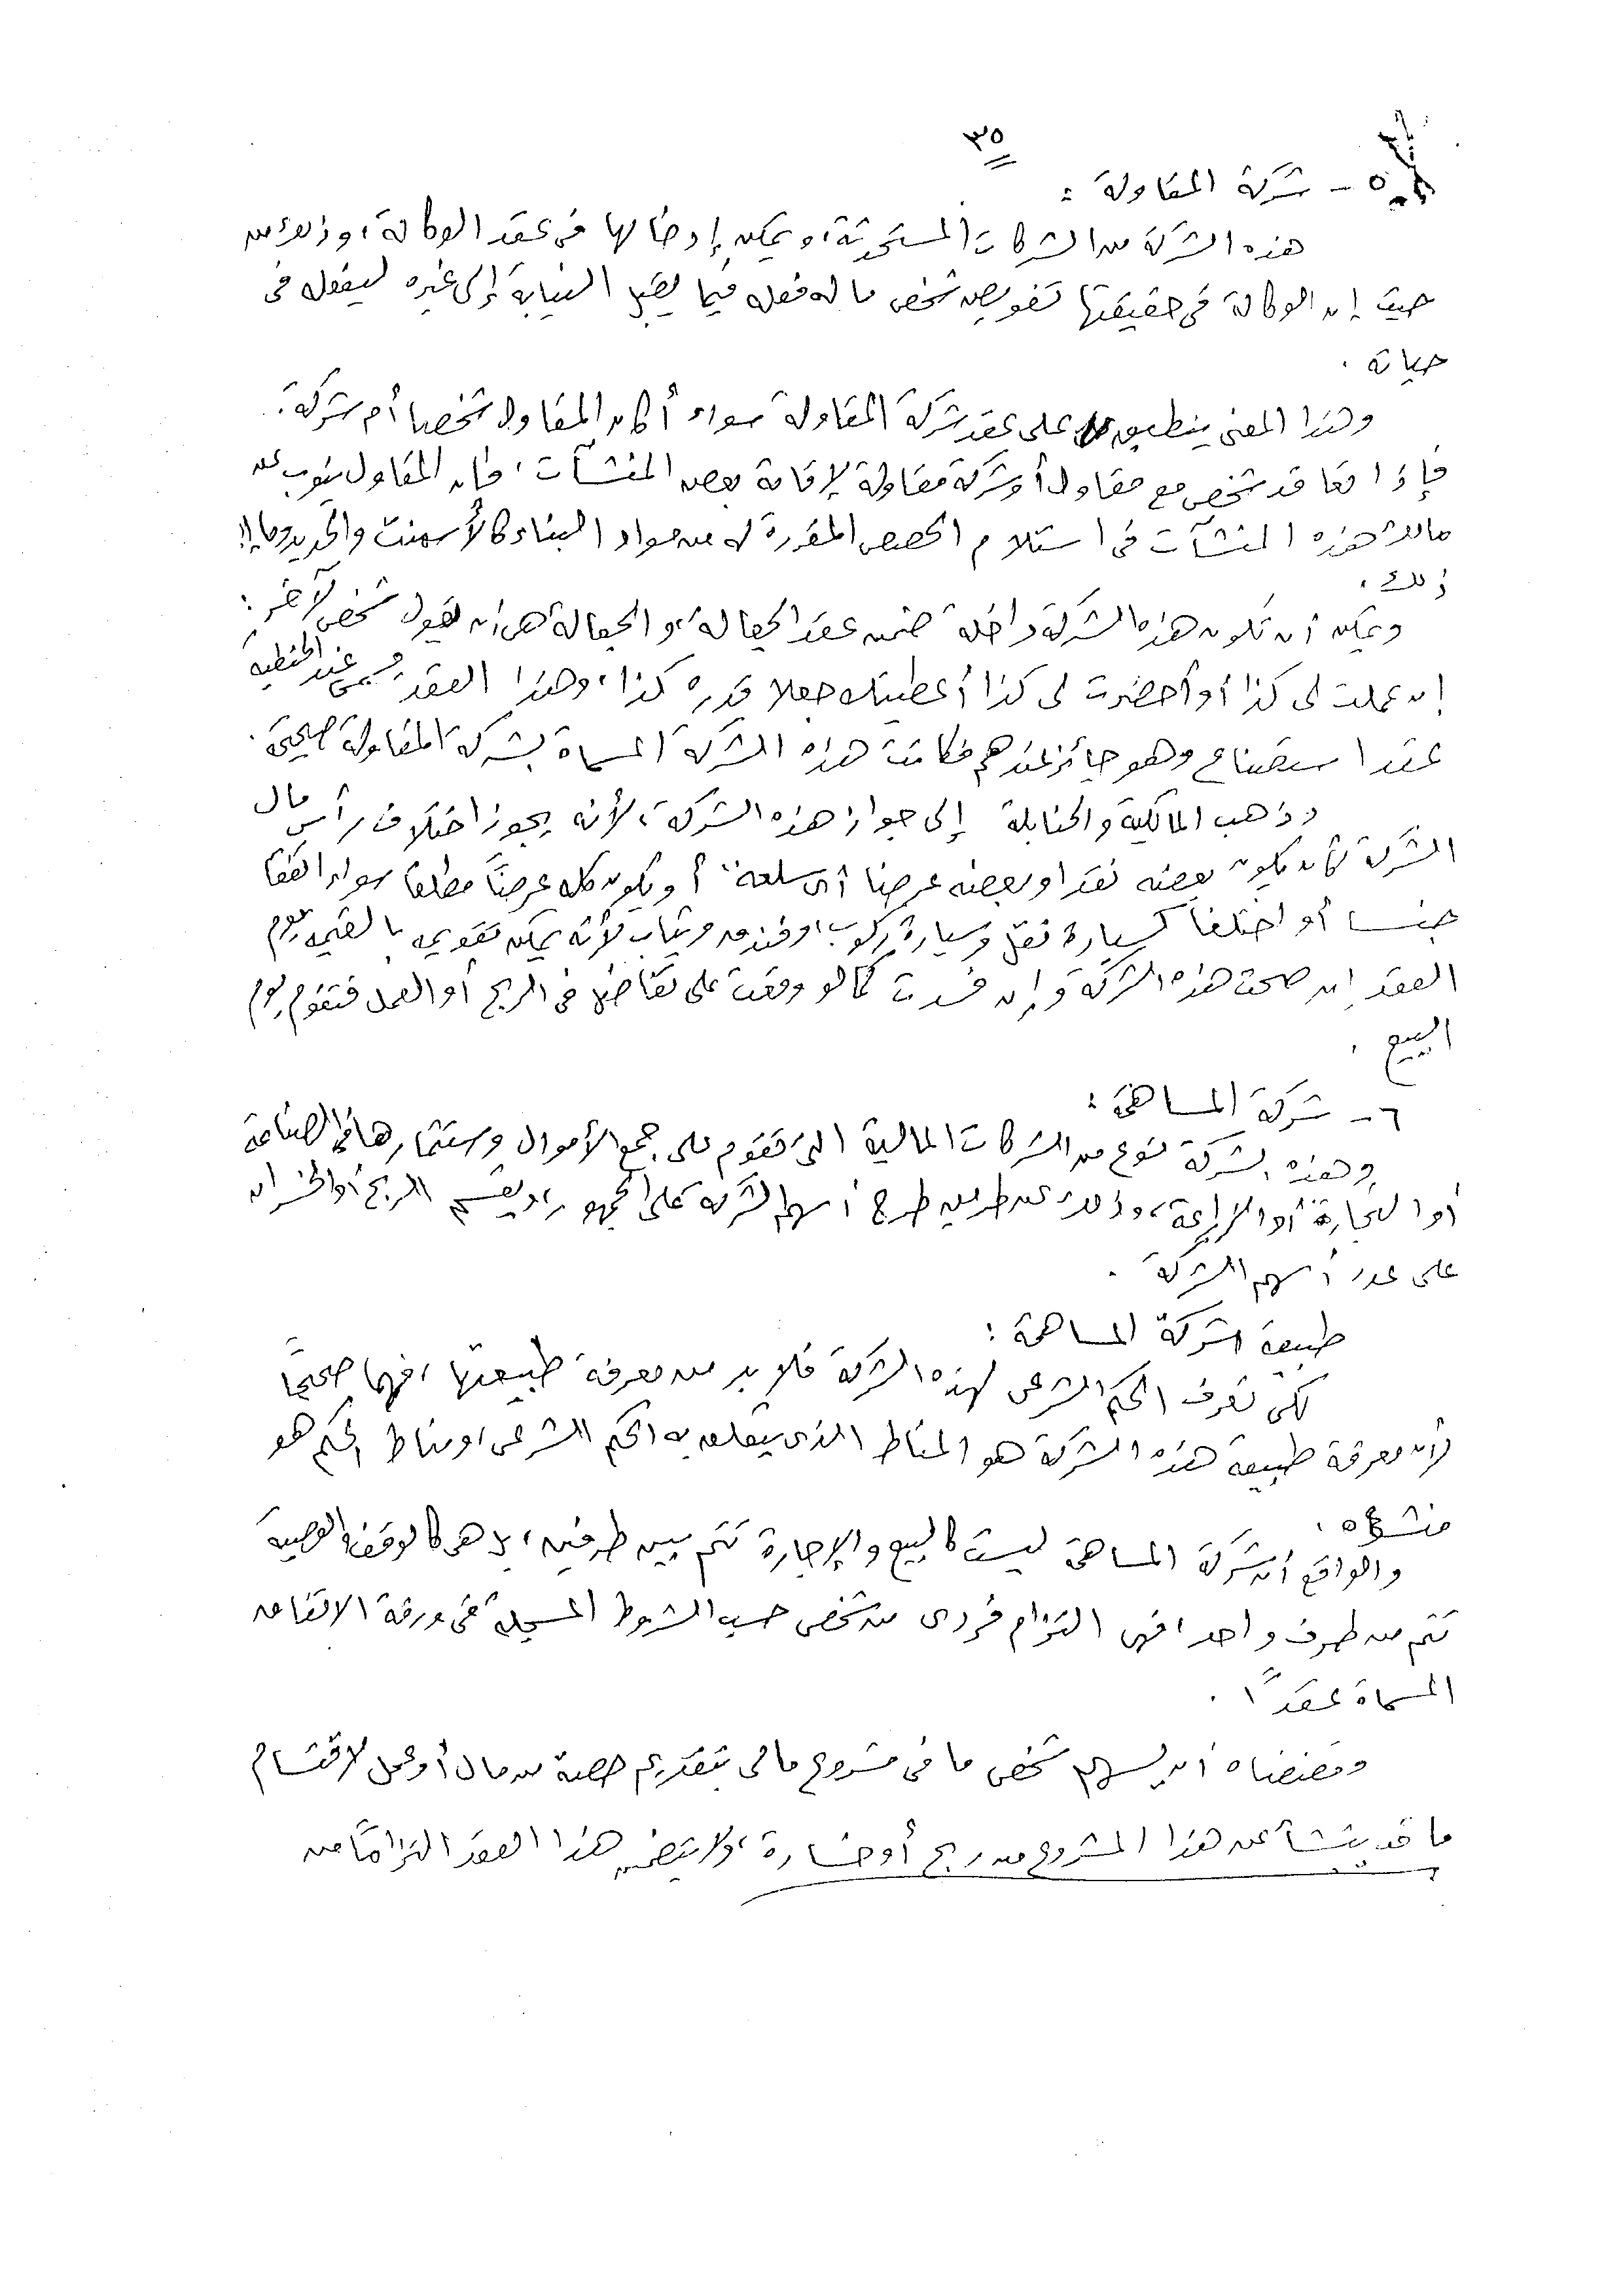 ٣٥
٥ - شركة المقاولة :
هذه الشركة من الشركات المستحدثة، ويمكن إدخالها فى عقد الوكالة، وذلك من
حيث إن الوكالة فى حقيقتها تفويض شخص ما له فعله فيما يقبل النيابة إلى غيره ليفعله فى
حياته .
وهذا المعنى ينطبق على عقد شركة المقاولة سواء أكان المقاول شخصا أم شركة .
فإذا تعاقد شخص مع مقاول أو شركة مقاولة لإقامة بعض المنشآت، فإن المقاول ينوب عن
مالك هذه المنشآت فى استلام الحصص المقررة له من مواد البناء كالأسمنت والحديد وما إلى
ذلك .
ويمكن أن تكون هذه الشركة داخلة ضمن عقد الجعالة، والجعالة هى أن يقول شخص لآخر :
إن عملت لى كذا أو أحضرت لى كذا أعطيتك جعلا قدره كذا، وهذا العقد يسمى عند الحنفية
عقد استصناع وهو جائز عندهم فكانت هذه الشركة المسماة بشركة المقاولة صحيحة .
وذهب المالكية والحنابلة إلى جواز هذه الشركة، لأنه يجوز اختلاف رأس مال
الشركة كأن يكون بعضه نقدا وبعضه عرضا أى سلعة، أو يكون كله عرضًا مطلقا سواء اتفقا
جنسا أو اختلفا كسيارة نقل وسيارة ركوب، وفندق وثياب لأنه يمكن تقويمه بالقيمة يوم
العقد إن صحت هذه الشركة وإن فسدت كما لو وقعت على تفاضل فى الربح أو العمل فتقوم يوم
البيع .
٦ - شركة المساهمة :
وهذه الشركة نوع من الشركات المالية التى تقوم على جمع الأموال واستثمارها فى الصناعة
أو التجارة أو الزراعة، وذلك عن طريق طرح أسهم الشركة على الجمهور، ويقسم الربح أو الخسران
على عدد أسهم الشركة .
طبيعة شركة المساهمة :
لكى نعرف الحكم الشرعى لهذه الشركة فلابد من معرفة طبيعتها، فهما صحيحًا
لأن معرفة طبيعة هذه الشركة هو المناط الذى يتعلق به الحكم الشرعى، ومناط الحكم هو
منشؤه .
والواقع أن شركة المساهمة ليست كالبيع والإجارة تتم بين طرفين، بل هى كالوقف والوصية
تتم من طرف واحد، فهى التزام فردى من شخص حسب الشروط المسجلة فى ورقة الاتفاق
المسماة عقدًا .
ومقتضاه أن يسهم شخص ما فى مشروع مالى بتقديم حصة من مال أو عمل لاقتسام
ما قد ينشأ عن هذا المشروع من ربح أو خسارة، ولا يتضمن هذا العقد التزامًا من